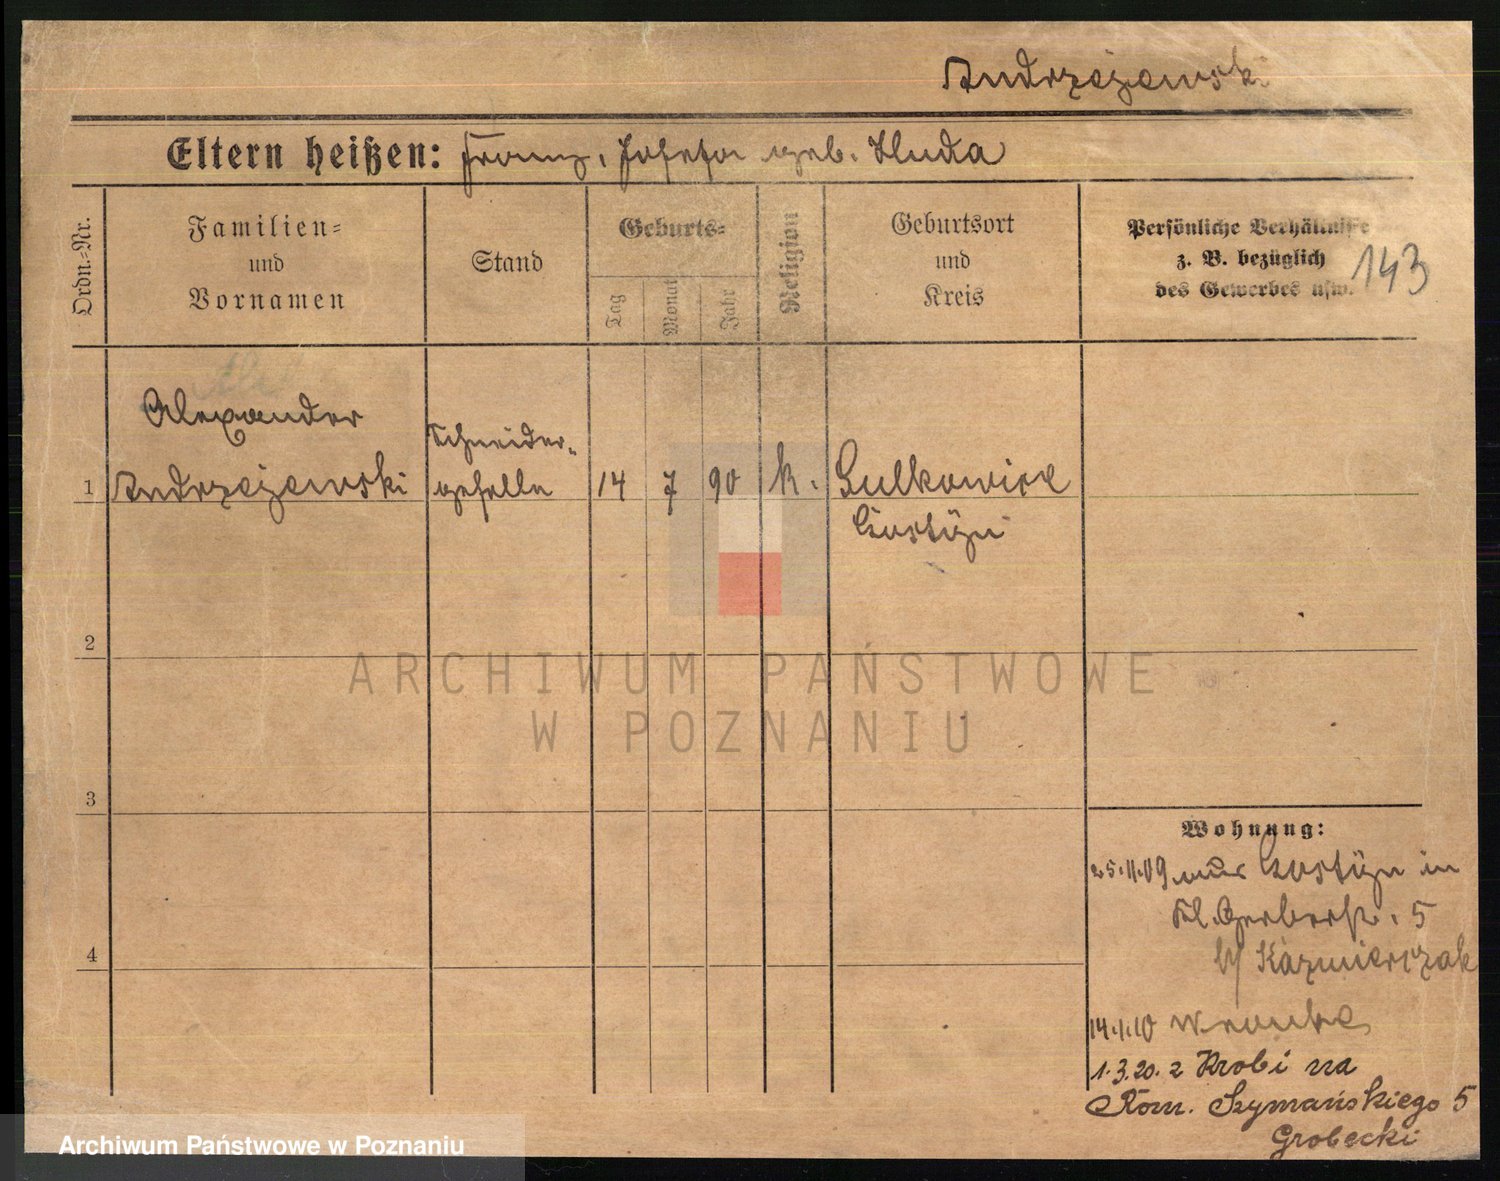 Andrzejewski
Eltern heißen: Franz, Josefa geb. Huda
Ordn.=Nr.
Familien=
und
Vornamen
Stand
Geburts=
Tag
Monat
Jahr
Religion
Geburtsort
und
Kreis
Persönliche Verhältnisse
z. B. bezüglich
des Gewerbes usw.
143
Alexander
Schneider=
1 Andrzejewski geselle 14 7 90 k. Sulkowice
Gostyn
2
3
4
Wohnung:
25.11.09 aus Gostyn in
Kl. Gerberstr. 5
b/ Kaźmierczak
14.1.10 Wronke
1.3.20. z Krobi na
Rom. Szymańskiego 5
Grobecki
ARCHIWUM PAŃSTWOWE
W POZNANIU
Archiwum Państwowe w Poznaniu